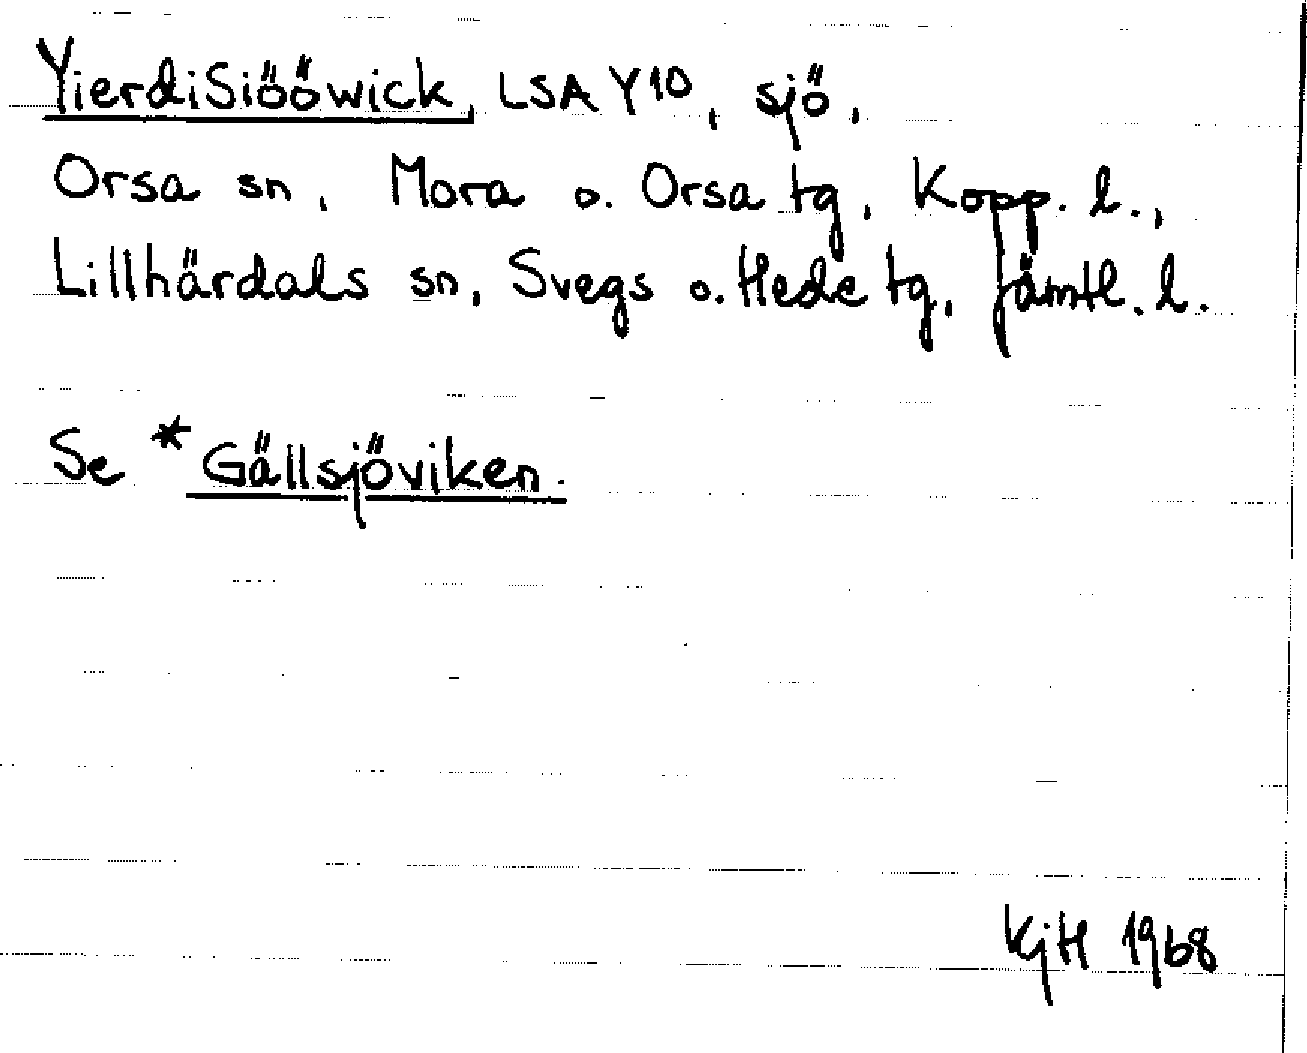 YierdiSiööwick, LSA Y10, sjö,
Orsa sn, Mora o. Orsa tg, Kopp. l.,
Lillhärdals sn, Svegs o. Hede tg, Jämtl. l.
Se *Gällsjöviken.
KjH 1968